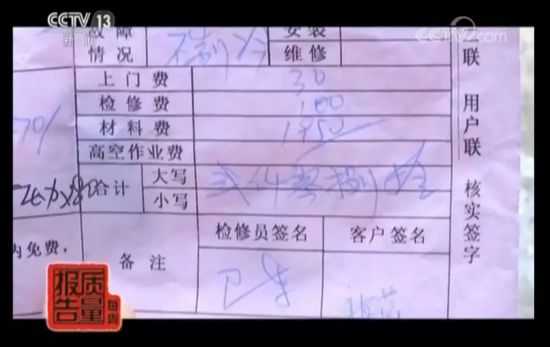 CCTV 13
新闻
CCTV.com
故障 情况 不制冷 安装 维修
上门费 30
检修费 100
材料费 1950
高空作业费
合计 大写 贰仟零捌拾
小写
内免费，
备注 检修员签名 客户签名
联 用户联 核实签字
每周
质量
报告